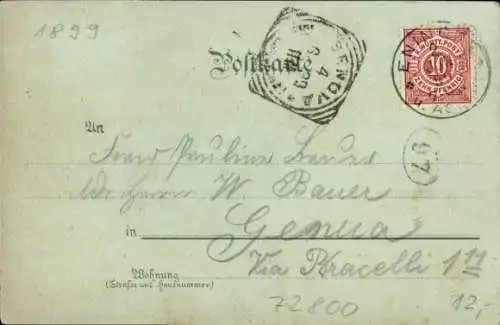 1899
Postkarte
GENOVA
6 4 99
K. WÜRTT. POST
10
ZEHN PFENNIG
97
An
Frau Pauline Bauer
W. Bauer
in Genua
Via Bracelli 1
Wohnung
(Straße und Hausnummer)
72800
12,-